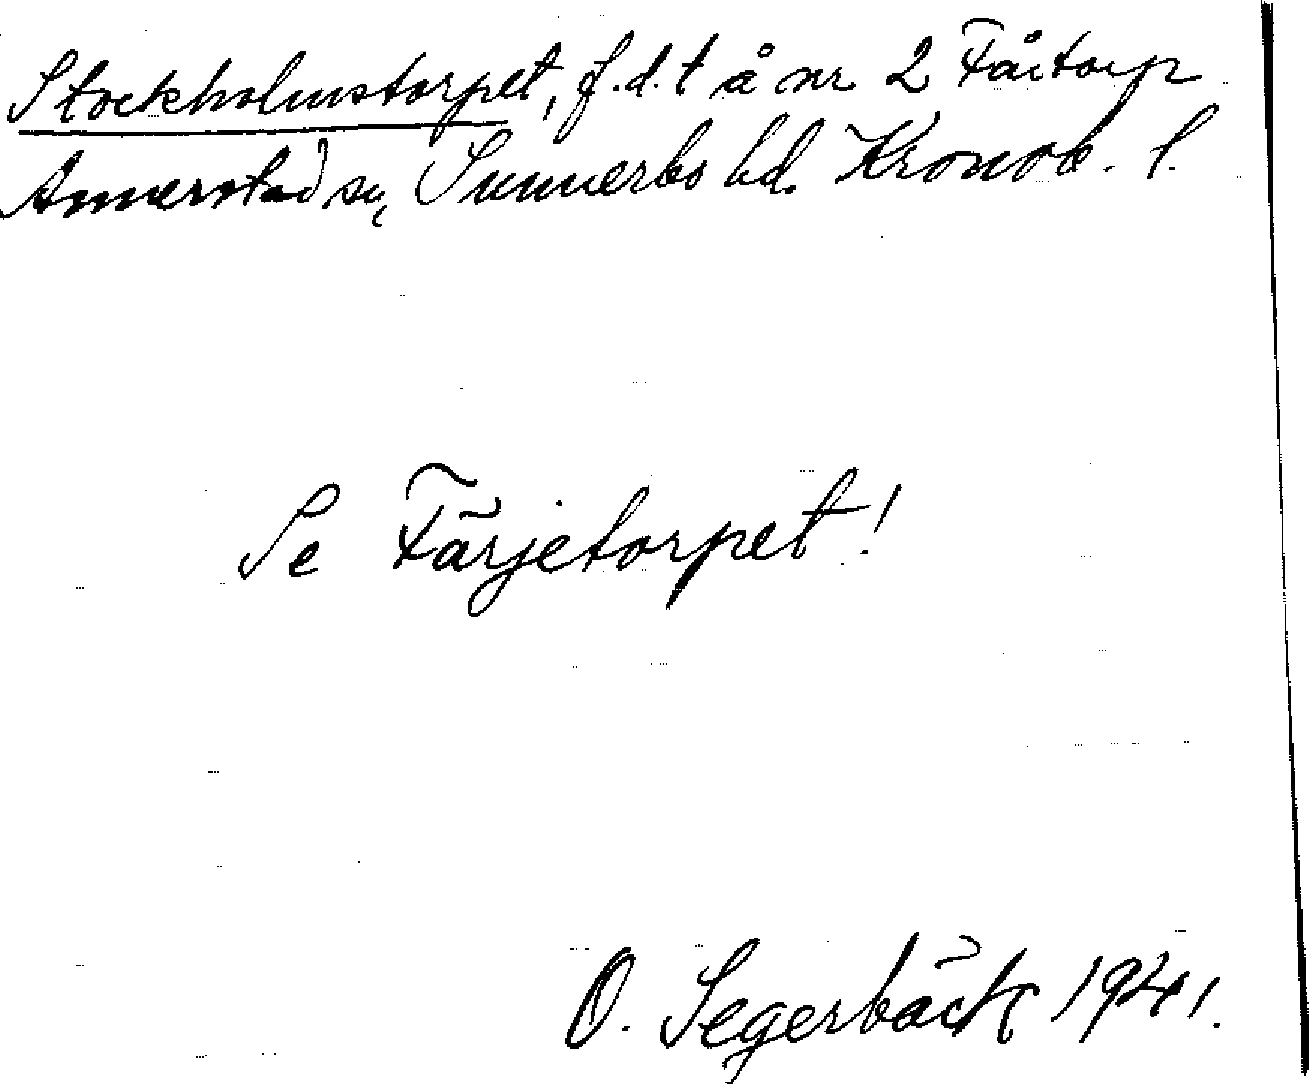 Stockholmstorpet, f.d.t å nr 2 Fåtorp
Annerstad sn, Sunnerbo hd. Kronob. l.
Se Färjetorpet!
O. Segerbäck 1941.